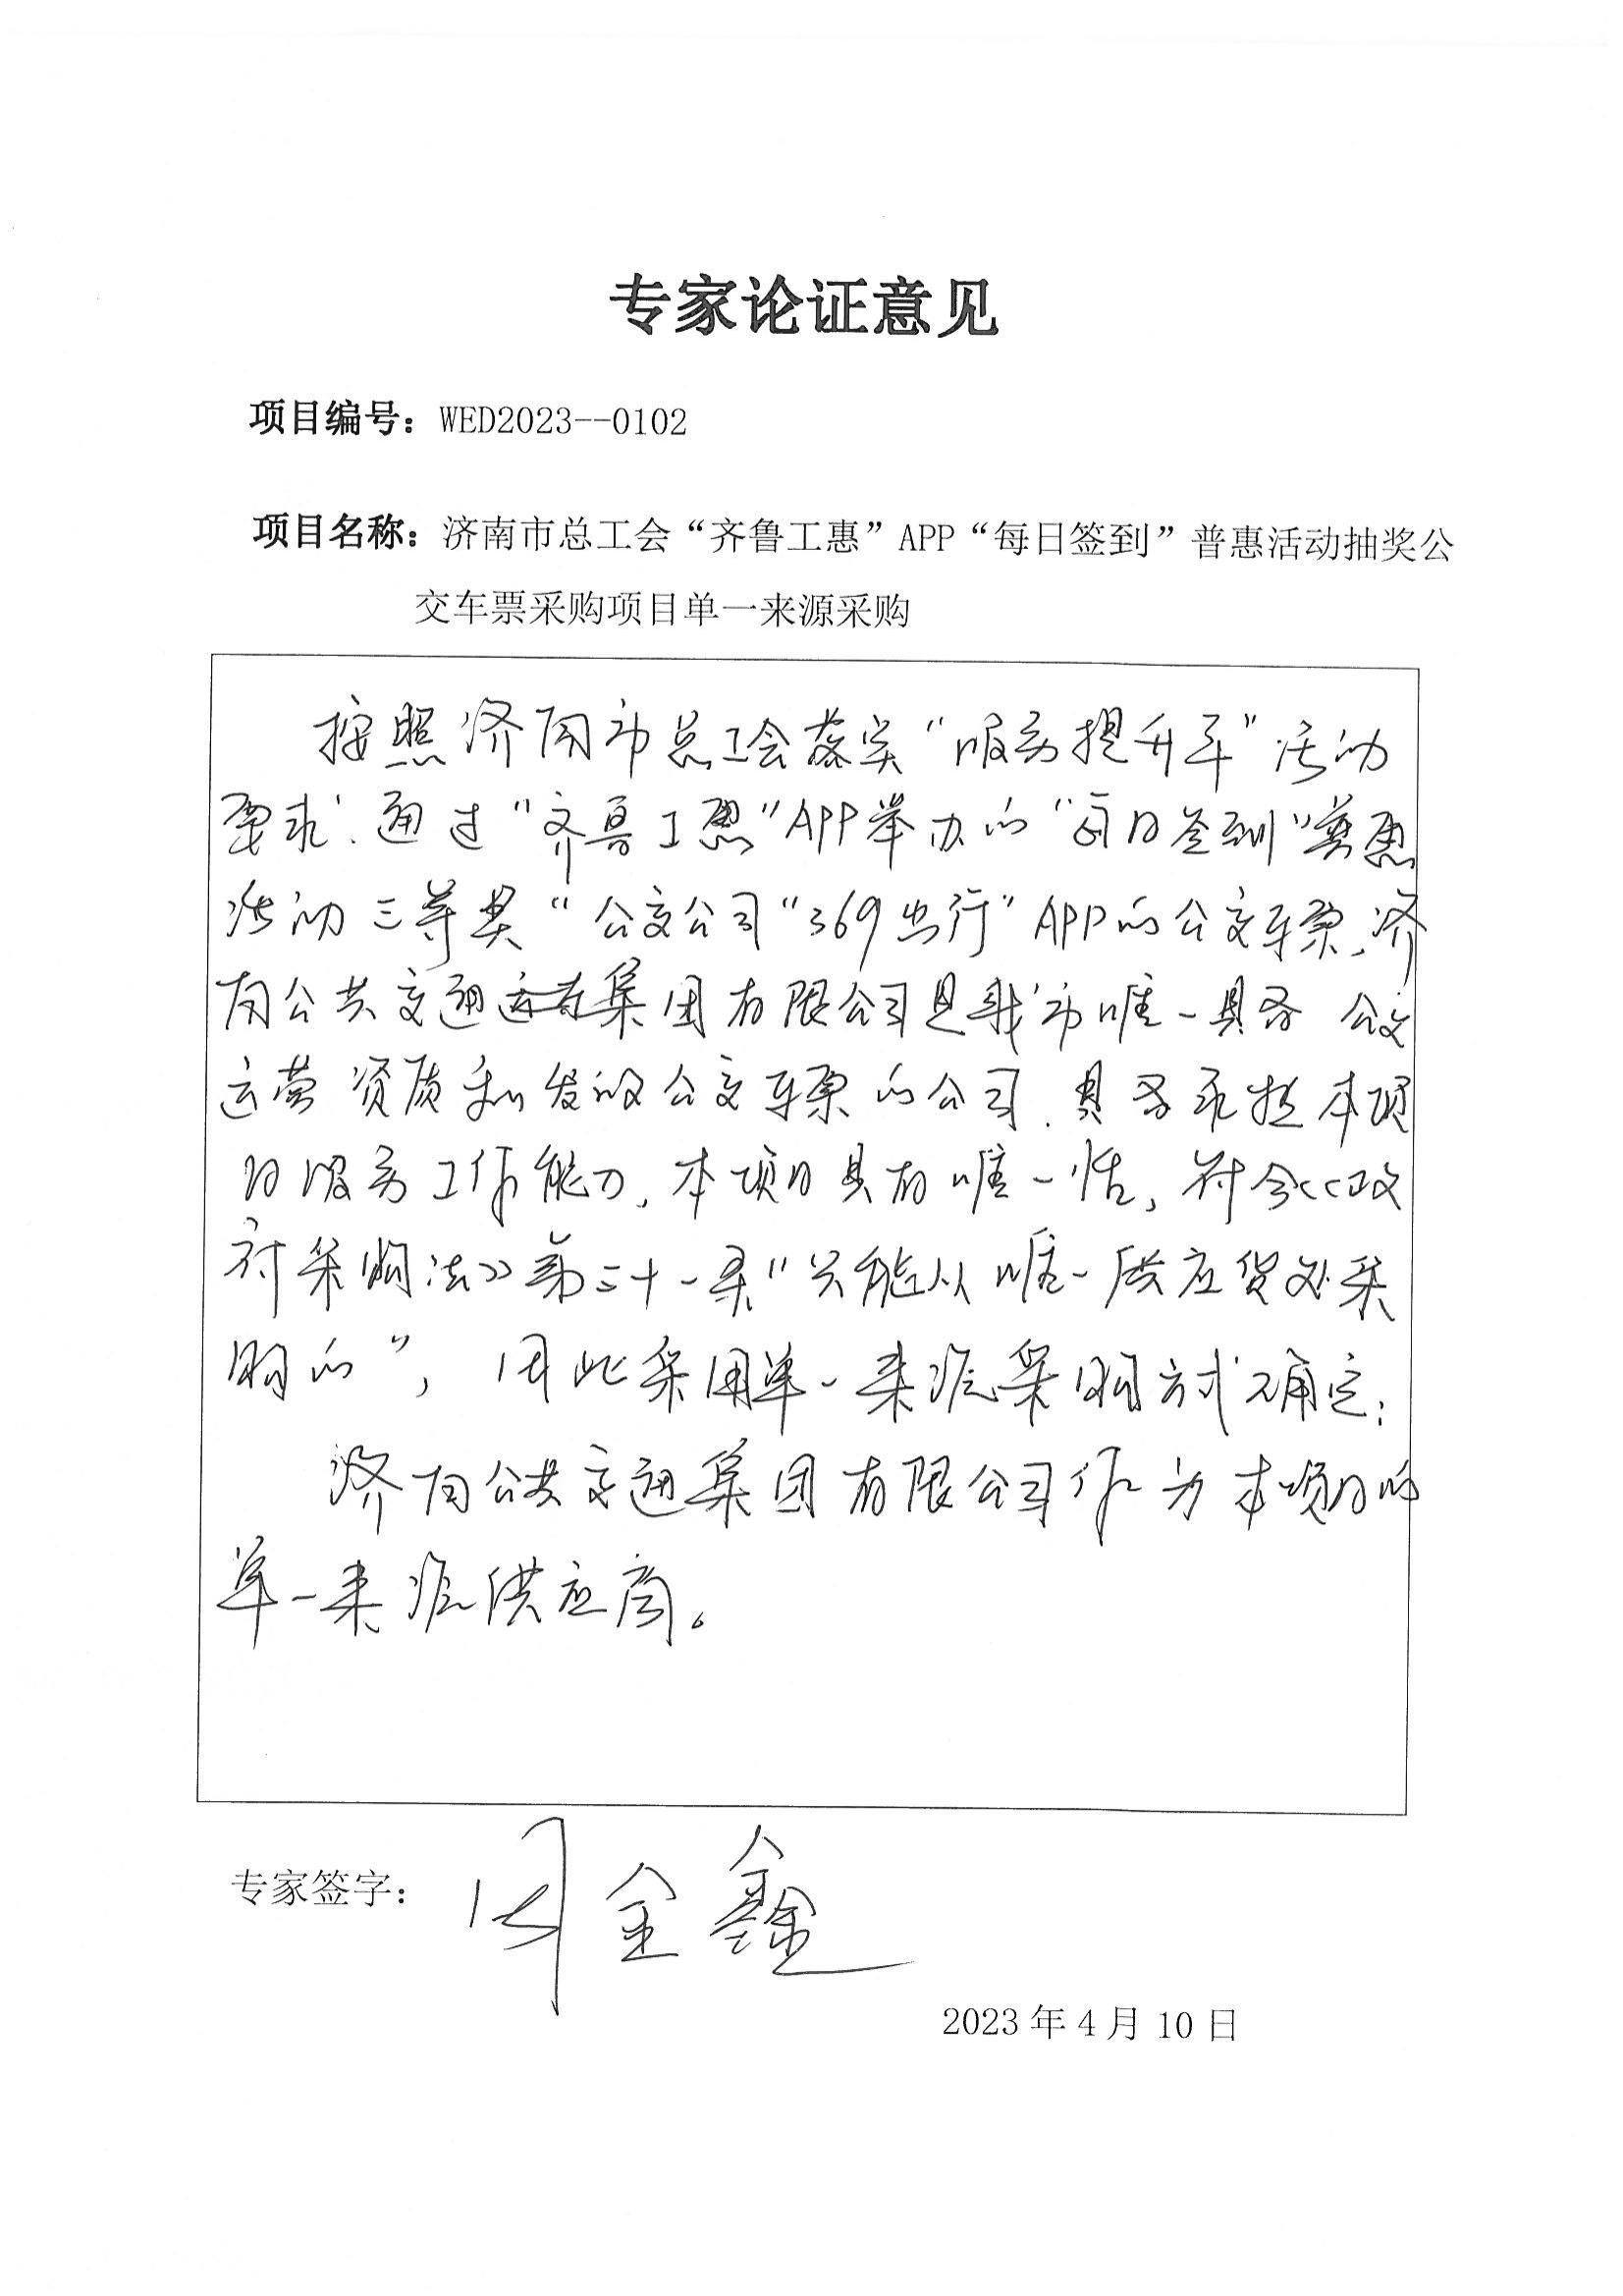 专家论证意见
项目编号：WED2023--0102
项目名称：济南市总工会“齐鲁工惠”APP“每日签到”普惠活动抽奖公
交车票采购项目单一来源采购
按照济南市总工会落实“服务提升年”活动
要求、通过“齐鲁工惠”APP举办的“每日签到”普惠
活动三等奖“公交公司“369出行”APP的公交车票，济
南公共交通集团有限公司是我市唯一具备公交
运营资质和发放公交车票的公司、具备承担本项
目服务工作能力，本项目具有唯一性，符合《政
府采购法》第三十一条“只能从唯一供应货处采
购的”，因此采用单一来源采购方式确定：
济南公共交通集团有限公司作为本项目的
单一来源供应商。
专家签字：周金鑫
2023年4月10日